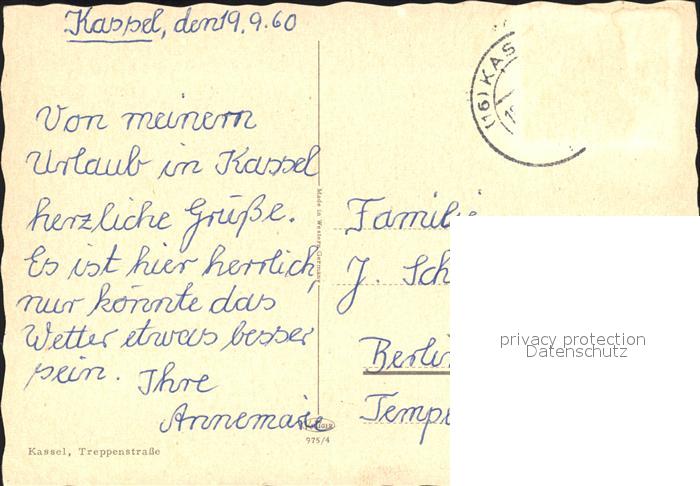 Kassel, den 19.9.60
(16) KAS
Von meinem
Urlaub in Kassel
herzliche Grüße.
Es ist hier herrlich,
nur könnte das
Wetter etwas besser
sein. Ihre
Annemarie
Made in Western Germany
Familie
J. Sch
Berli
Tempe
privacy protection
Datenschutz
975/4
Kassel, Treppenstraße